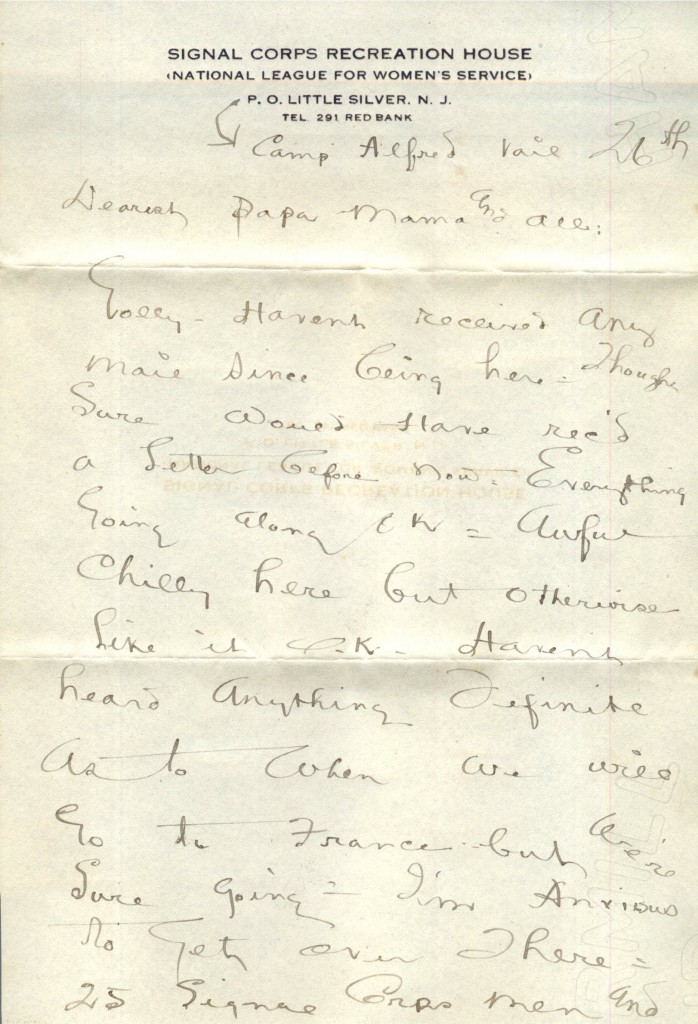 SIGNAL CORPS RECREATION HOUSE
(NATIONAL LEAGUE FOR WOMEN'S SERVICE)
P. O. LITTLE SILVER, N. J.
TEL. 291 RED BANK
Camp Alfred Vail 26th
Dearest Papa Mama and all:
Golly - Havent received any
mail since being here - Though
Sure Would Have rec'd
a letter before Now - Everything
Going along OK = Awful
Chilly here but otherwise
like it O.K. - Havent
heard Anything Definite
As to When we will
Go to France but we're
Sure going = I'm Anxious
to Get over There =
25 Signal Corps men and